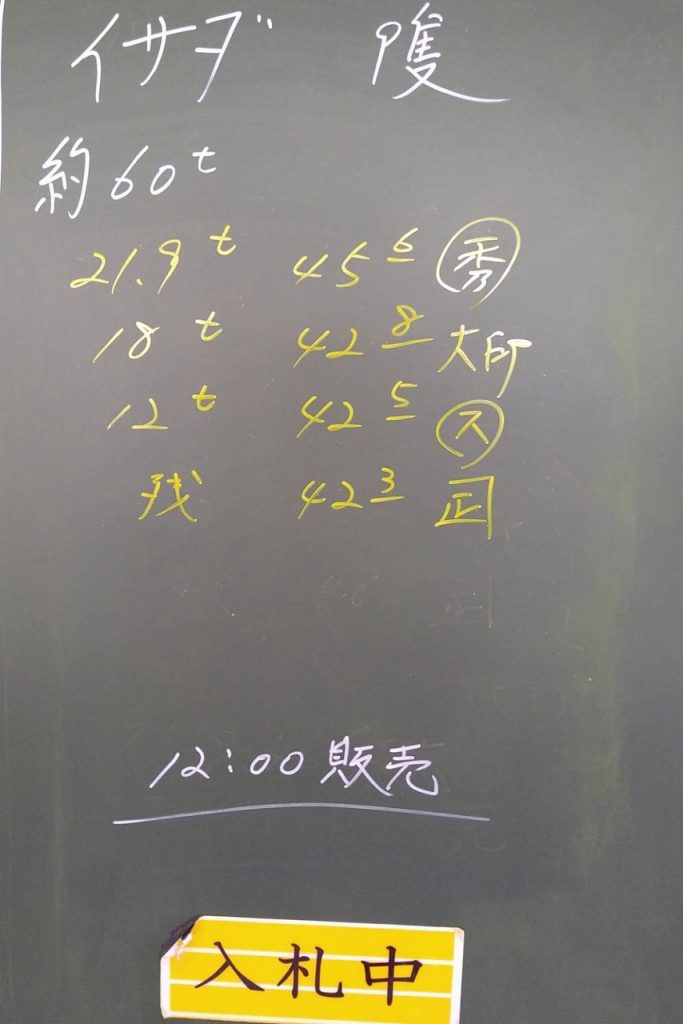 イサダ
約60t
21.9t 45 6 秀
18t 42 8 大印
12t 42 5 ス
残 42 3 正
12:00 販売
入札中